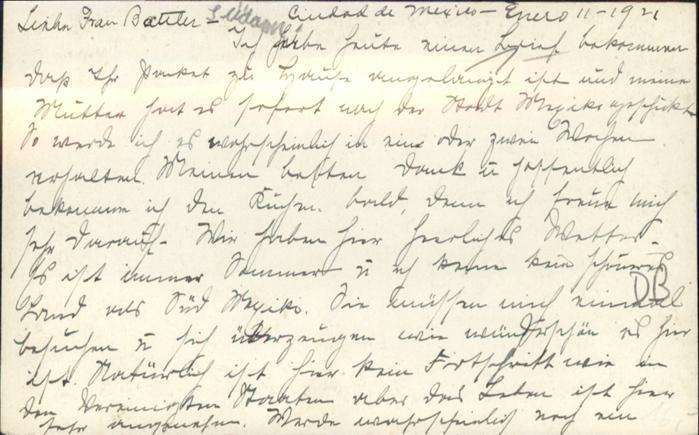 Liebe Frau Battler – Ciudad de Mexico – Enero 11 – 1921
Ich habe heute einen Brief bekommen
daß Ihr Paket zu Hause angelangt ist und meine
Mutter hat es sofort nach der Stadt Mexiko geschickt
So werde ich es wahrscheinlich in ein oder zwei Wochen
erhalten. Meinen besten Dank u hoffentlich
bekomme ich den Kuchen bald, denn ich freue mich
sehr darauf – Wir haben hier herrliches Wetter –
Es ist immer Sommer u ich kenne kein schöneres
Land als Süd Mexiko. Sie müssen mich einmal
DB
besuchen u sich überzeugen wie wunderschön es hier
ist. Natürlich ist hier kein Fortschritt wie in
den Vereinigten Staaten aber das Leben ist hier
sehr angenehm. Werde wahrscheinlich noch ein